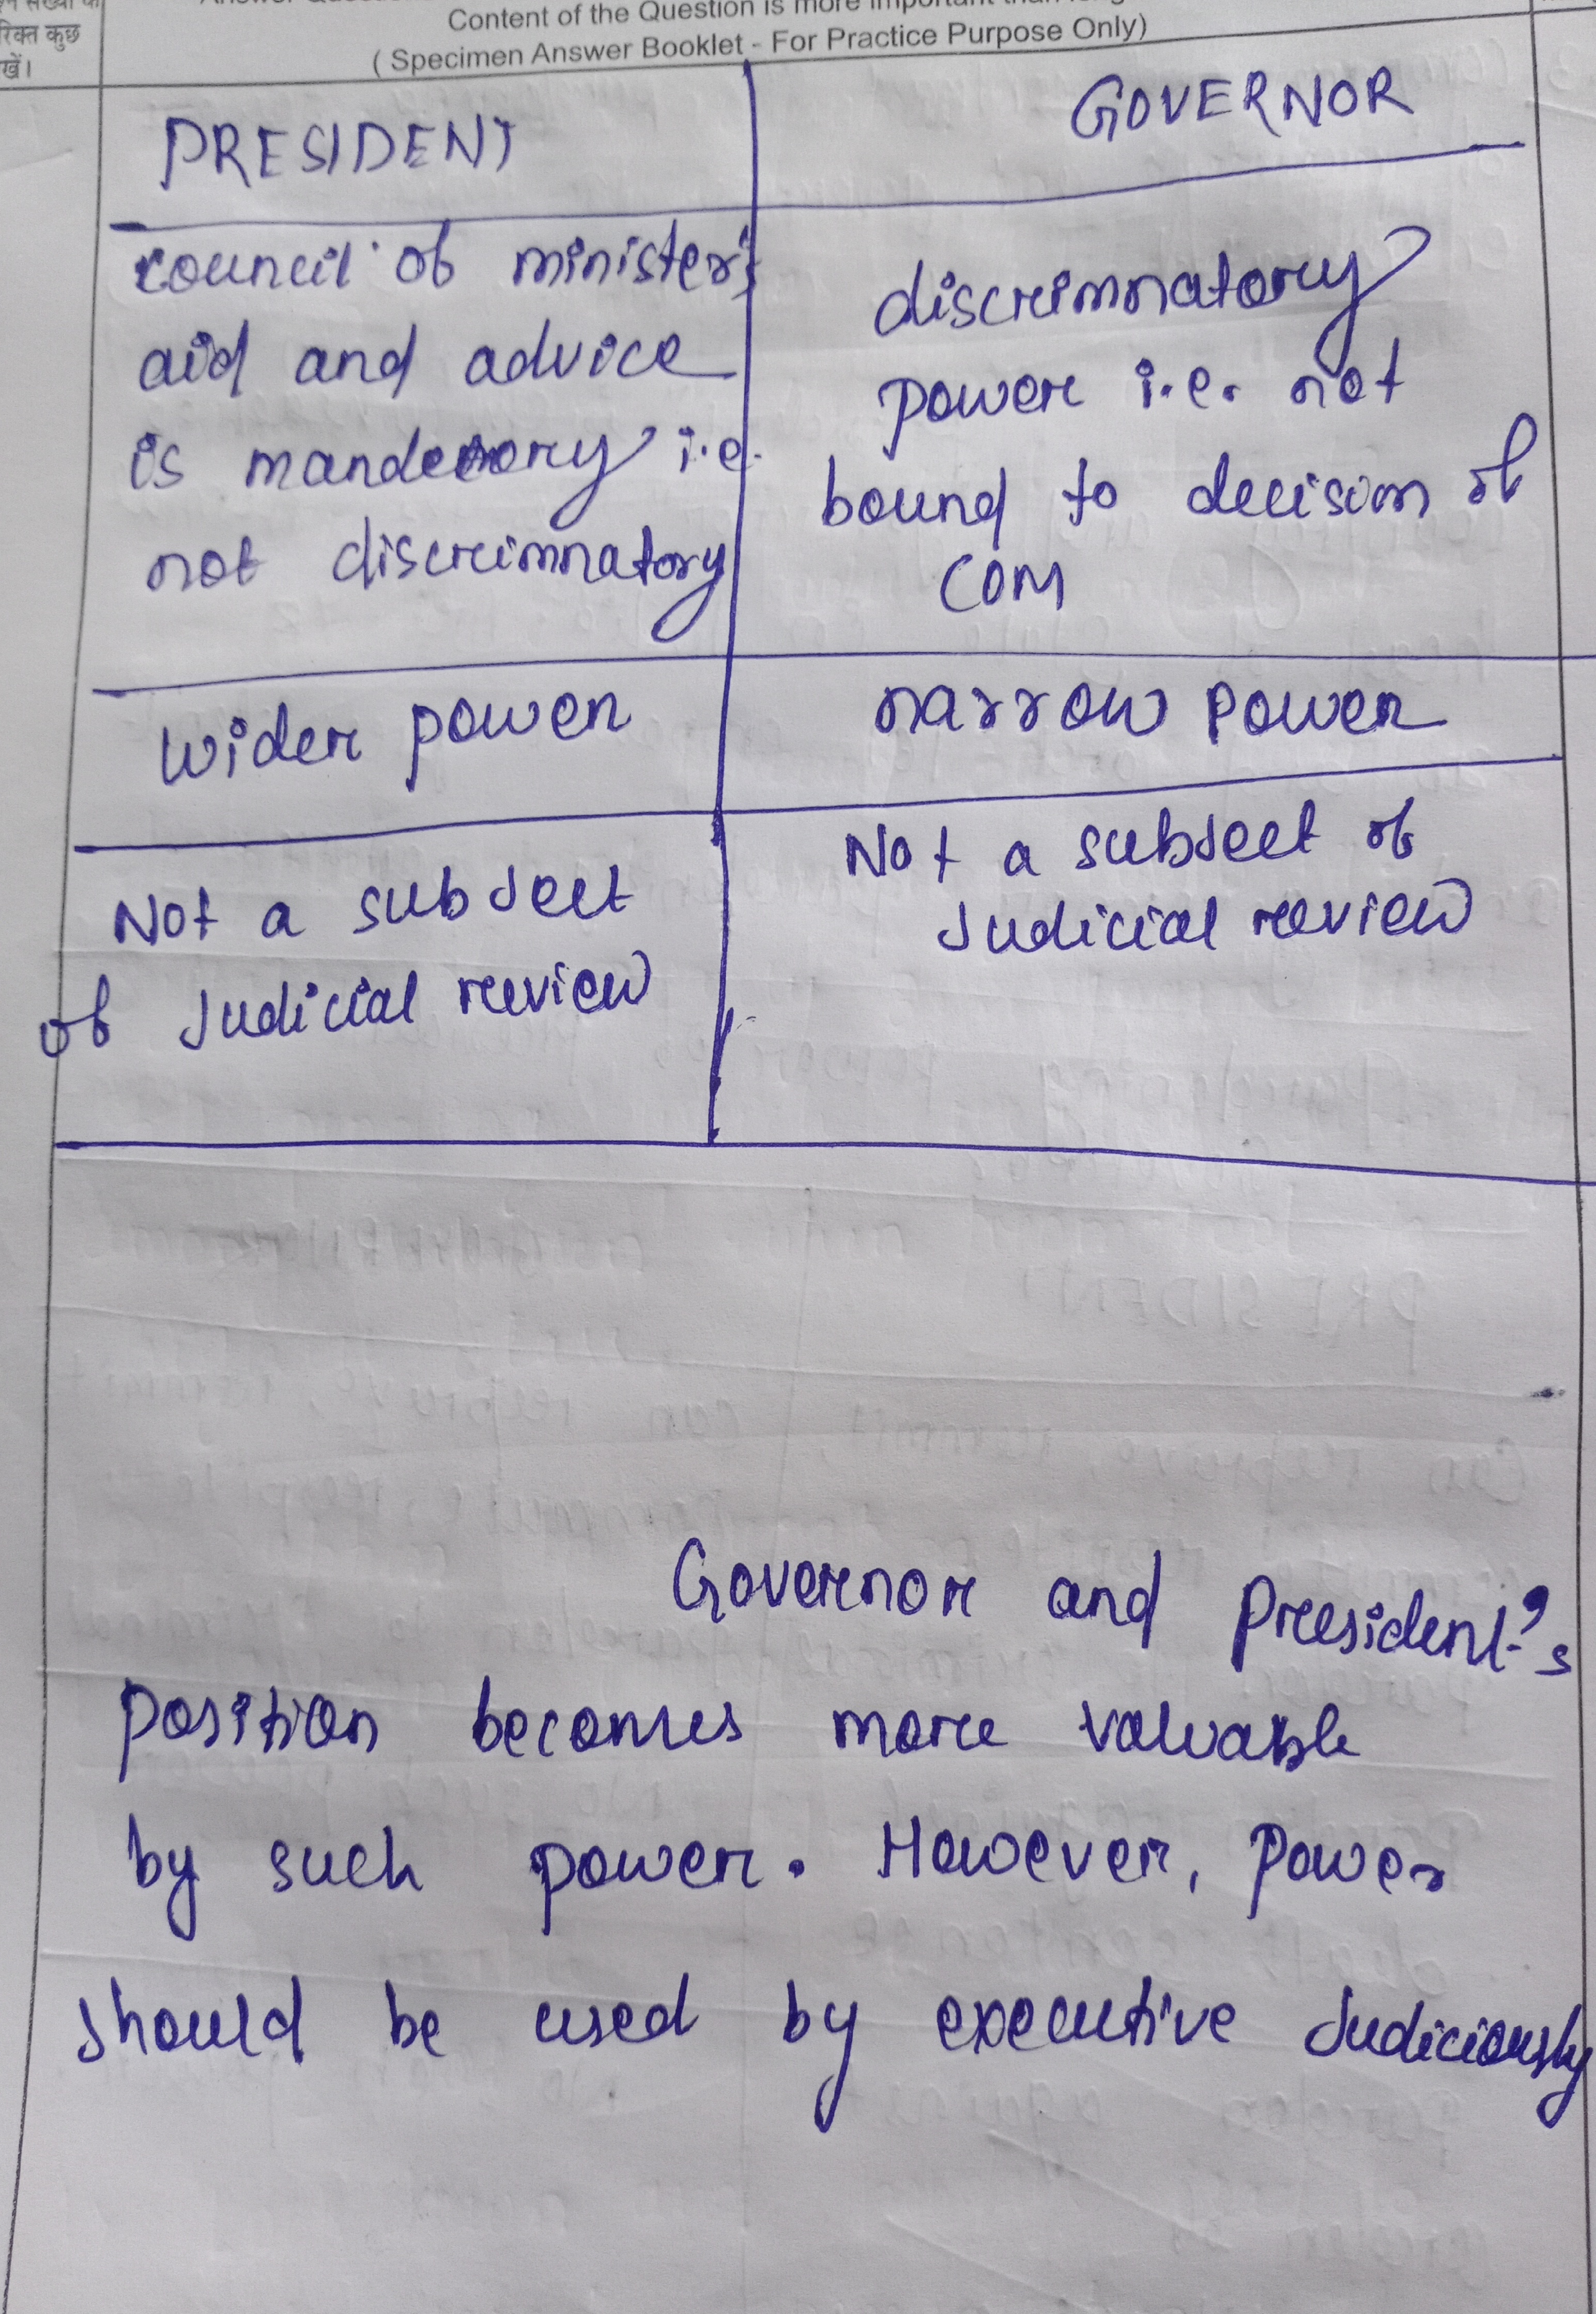 रिक्त कुछ
खें।
Content of the Question is more important than
( Specimen Answer Booklet - For Practice Purpose Only)
PRESIDENT
GOVERNOR
council of minister's
aid and advice
is mandetory i.e.
not discrimnatory
discrimnatory
power i.e. not
bound to decision of
COM
wider power
narrow power
Not a subject
of Judicial review
Not a subject of
Judicial review
Governor and President's
position becomes more valuable
by such power. However, power
should be used by executive Judiciously